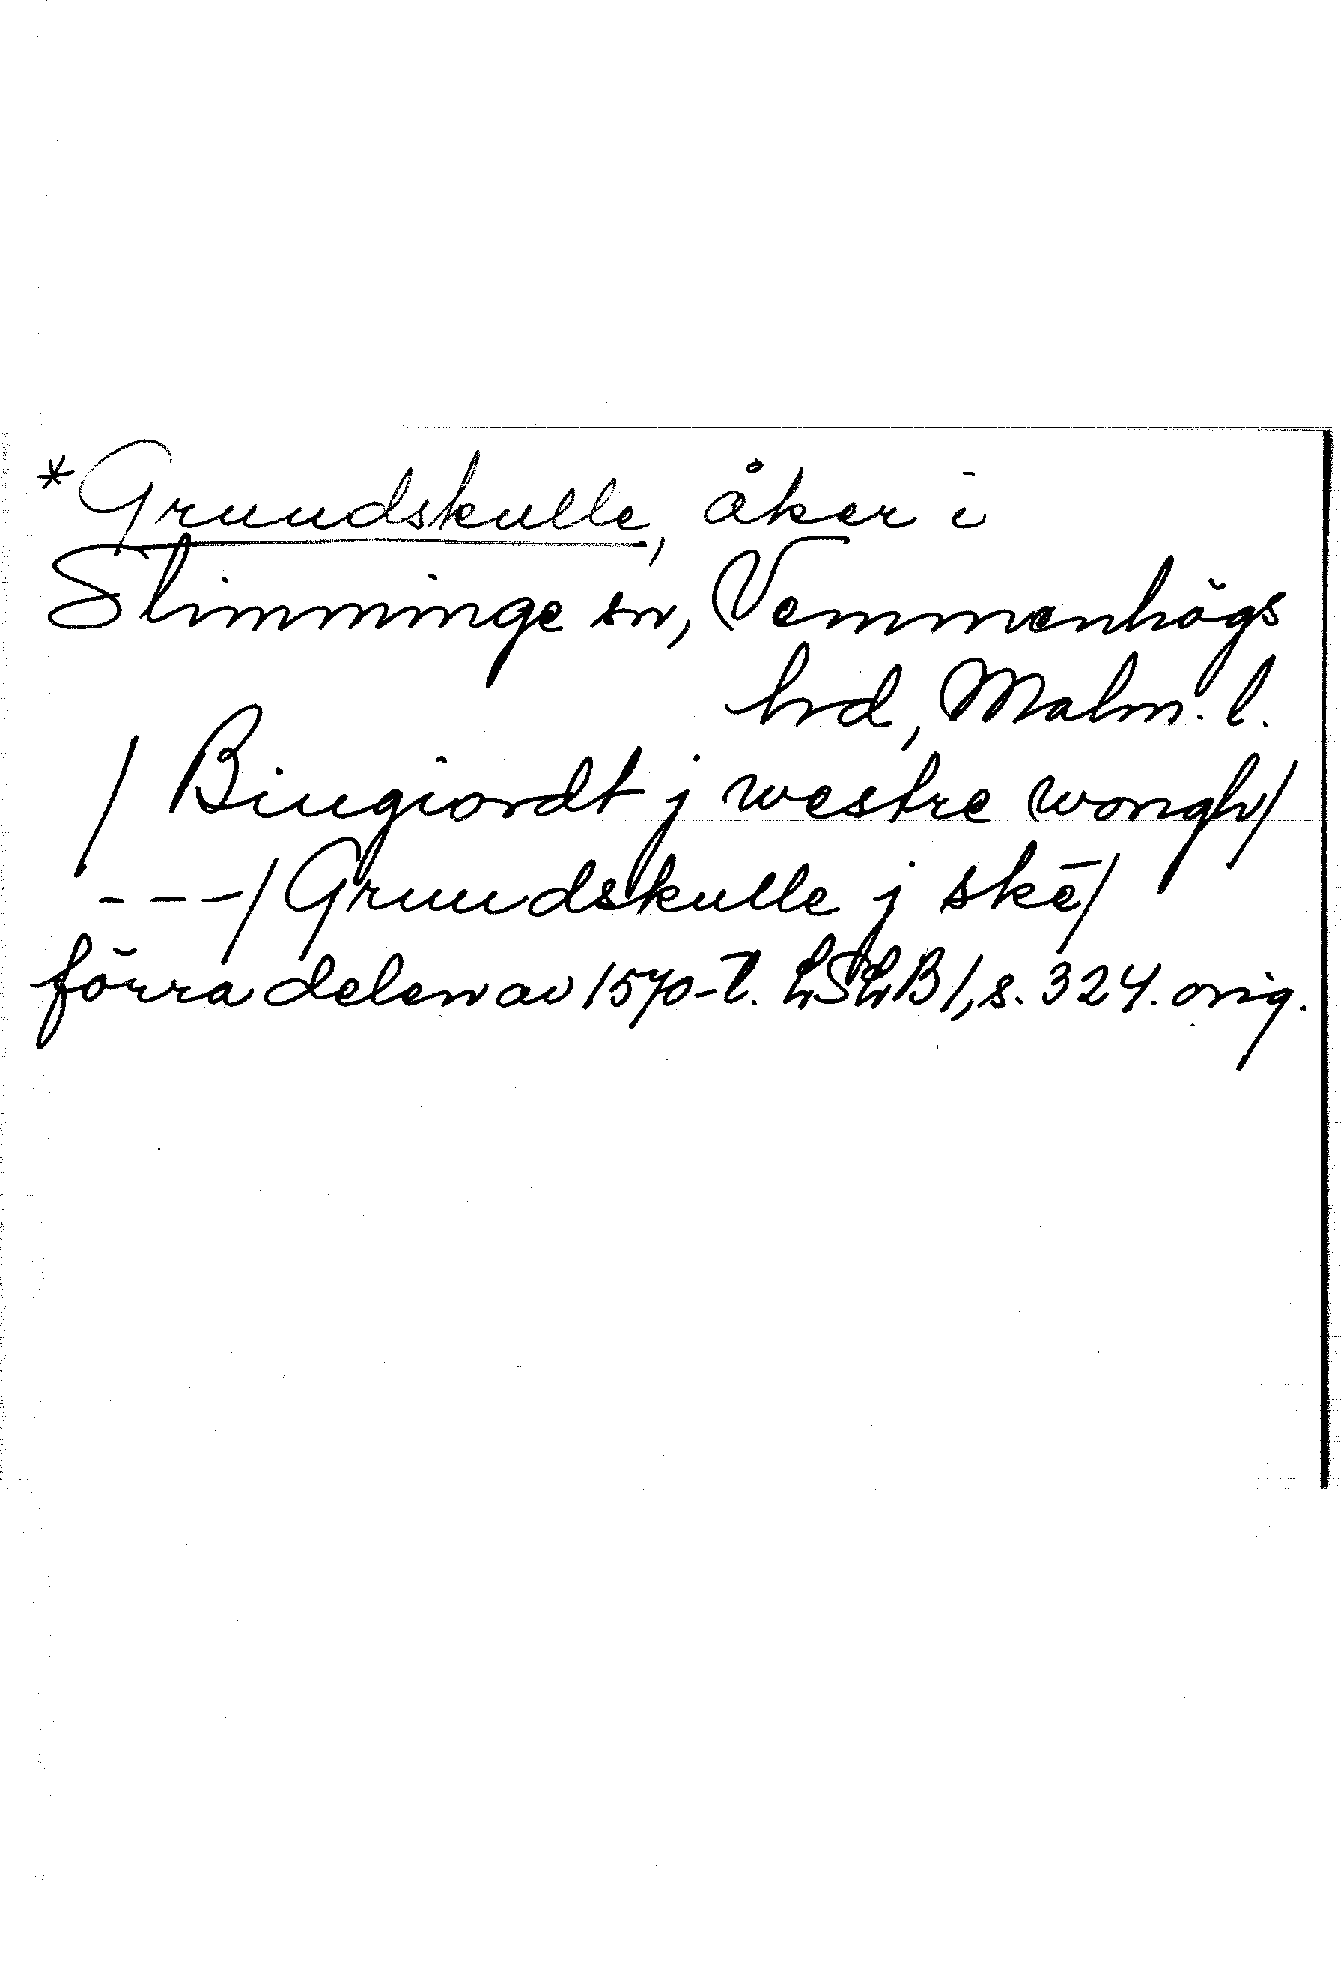 *Grundskulle, åker i
Slimminge sn, Vemmenhögs
hd, Malm. l.
/ Biugiordt j westre wongh/
---/ Grundskulle j skē/
förra delen av 1570-t. LSLB 1, s. 324. orig.